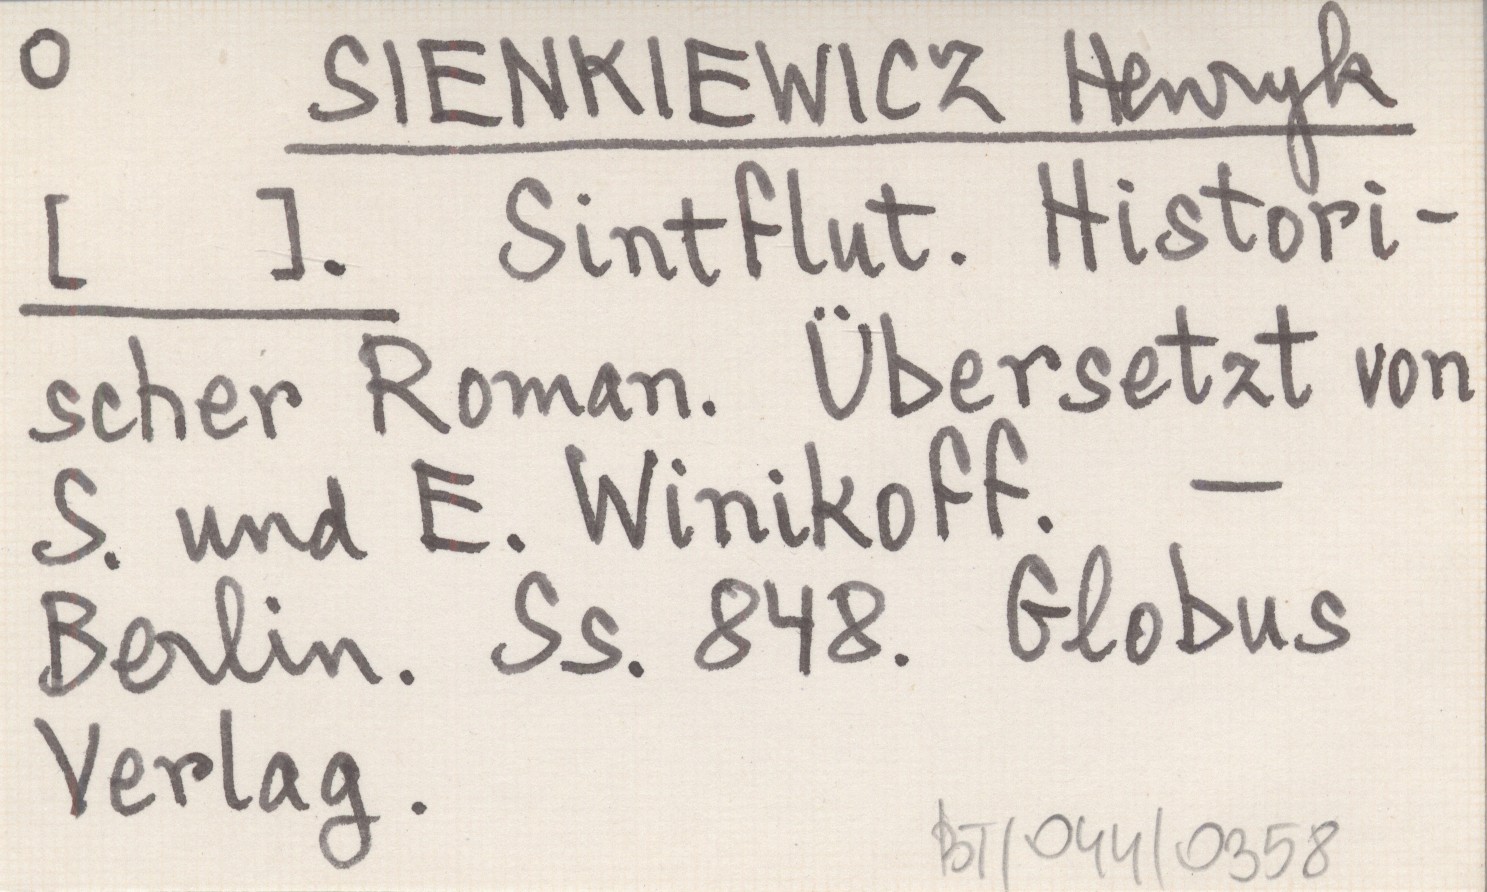 O SIENKIEWICZ Henryk
[ ]. Sintflut. Histori-
scher Roman. Übersetzt von
S. und E. Winikoff. —
Berlin. Ss. 848. Globus
Verlag.
BT/044/0358